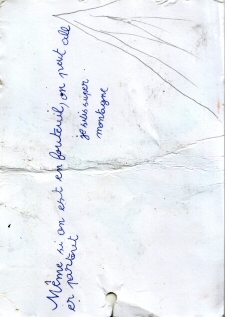 Même si on est en fauteuil, on peut all
er partout
je suis super
montagne